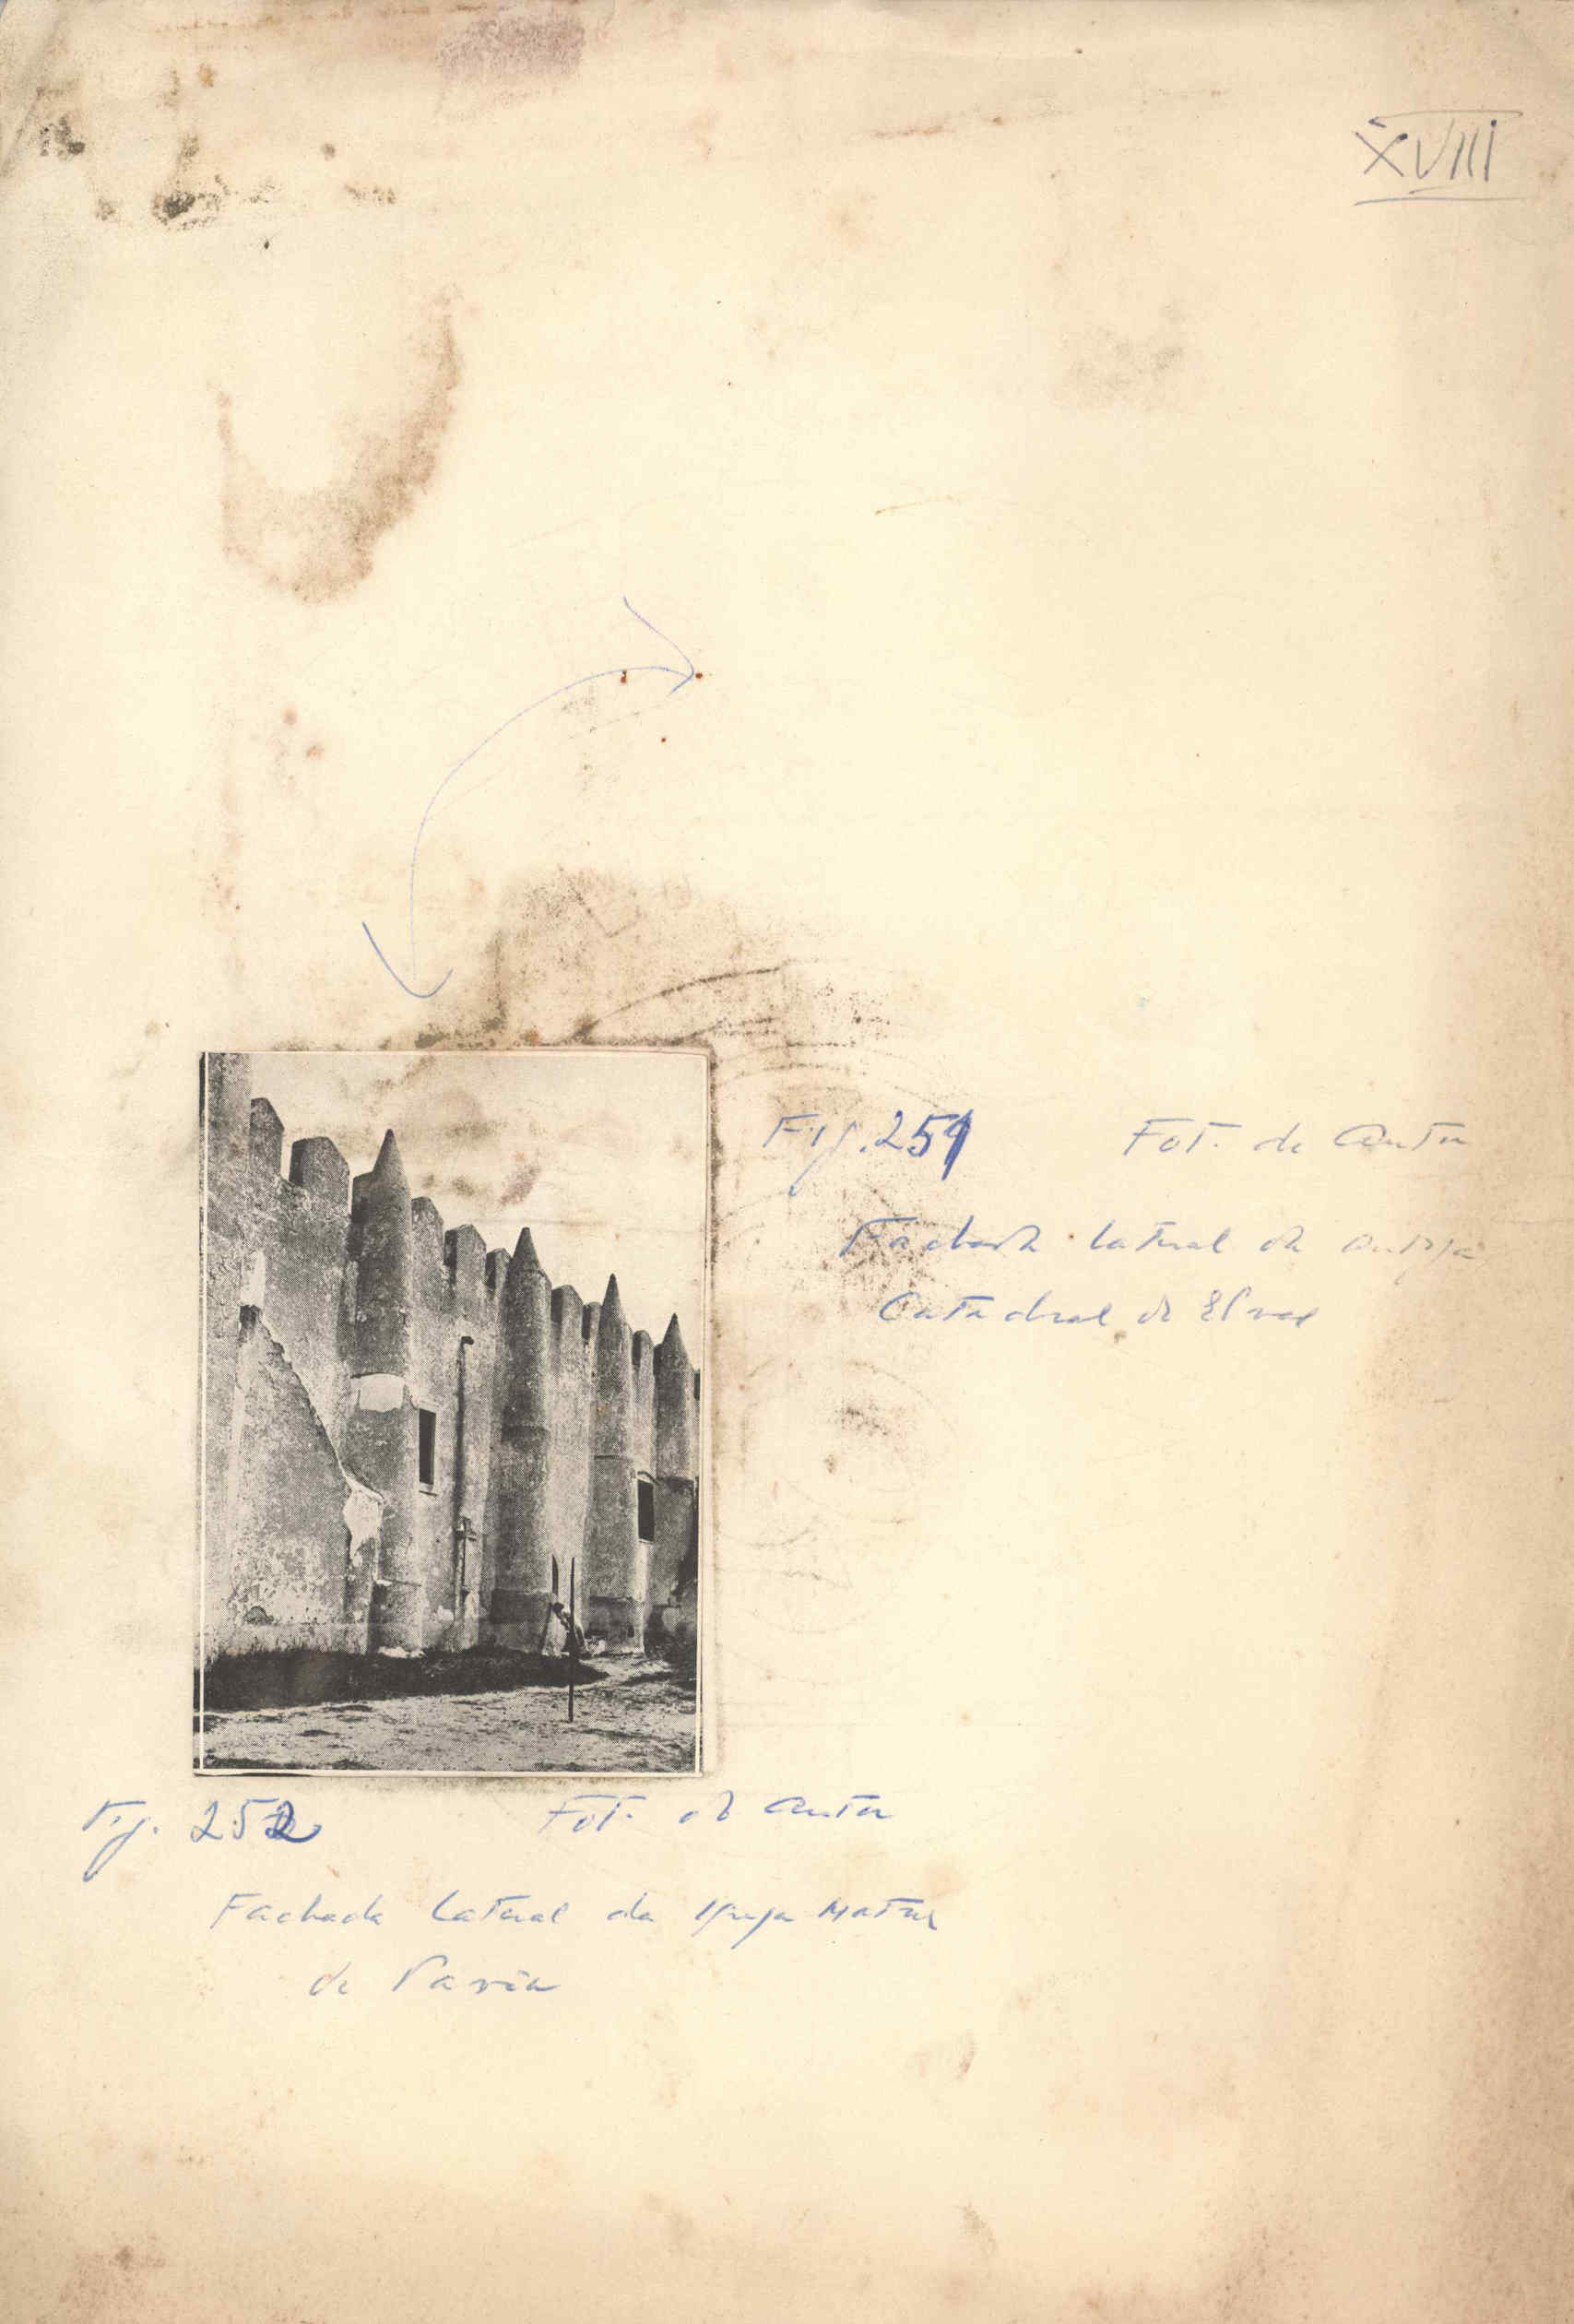 XVIII
Fig. 251 Fot. do Autor
Fachada lateral da antiga
Catedral de Elvas
Fig. 252 Fot. do Autor
Fachada lateral da Igreja Matriz
de Pavia